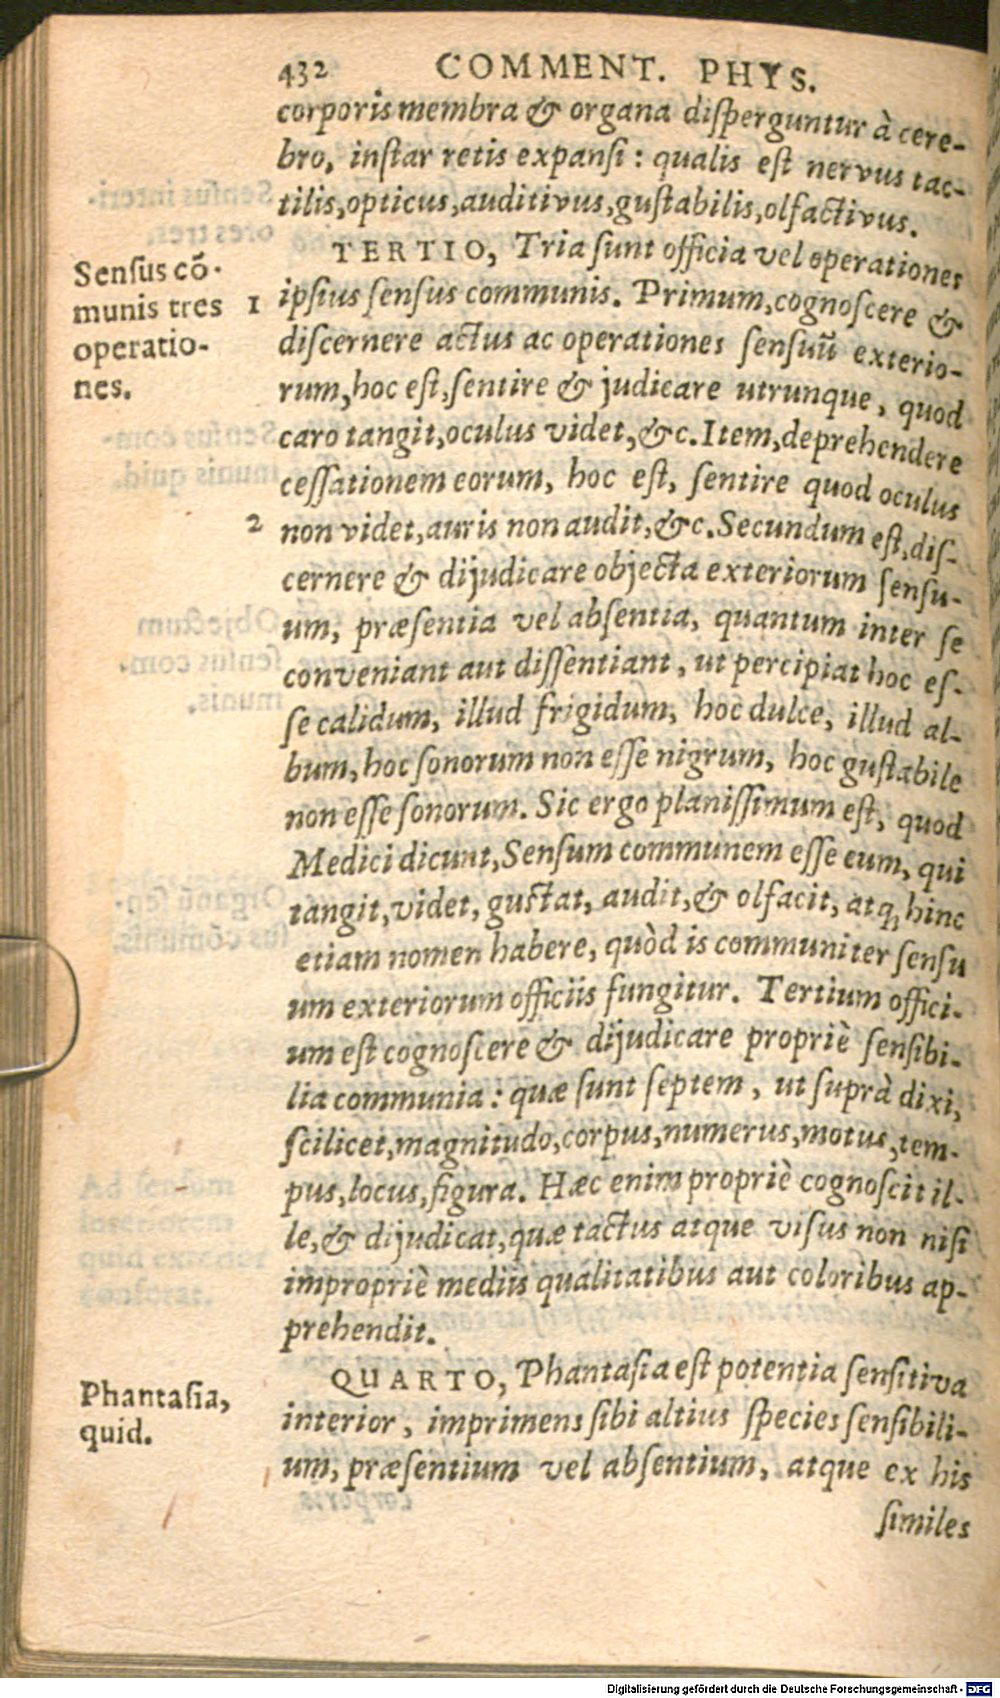 432 COMMENT. PHYS.
corporis membra & organa diſperguntur à cere-
bro, inſtar retis expanſi : qualis eſt nervus tac-
tilis, opticus, auditivus, guſtabilis, olfactivus.
TERTIO, Tria ſunt officia vel operationes
Senſus cō-
munis tres
operatio-
nes.
1 ipſius ſenſus communis. Primum, cognoſcere &
diſcernere actus ac operationes ſenſuū exterio-
rum, hoc eſt, ſentire & judicare utrunque, quod
caro tangit, oculus videt, &c. Item, deprehendere
ceſſationem eorum, hoc eſt, ſentire quod oculus
2 non videt, auris non audit, &c. Secundum eſt, diſ-
cernere & dijudicare objecta exteriorum ſenſu-
um, præſentia vel abſentia, quantum inter ſe
conveniant aut diſſentiant, ut percipiat hoc eſ-
ſe calidum, illud frigidum, hoc dulce, illud al-
bum, hoc ſonorum non eſſe nigrum, hoc guſtabile
non eſſe ſonorum. Sic ergo planiſſimum eſt, quod
Medici dicunt, Senſum communem eſſe eum, qui
tangit, videt, guſtat, audit, & olfacit, atq; hinc
etiam nomen habere, quòd is communiter ſenſu
um exteriorum officiis fungitur. Tertium offici-
um eſt cognoſcere & dijudicare propriè ſenſibi-
lia communia : quæ ſunt ſeptem, ut ſuprà dixi,
ſcilicet, magnitudo, corpus, numerus, motus, tem-
pus, locus, figura. Hæc enim propriè cognoſcit il-
le, & dijudicat, quæ tactus atque viſus non niſi
impropriè mediis qualitatibus aut coloribus ap-
prehendit.
QUARTO, Phantaſia eſt potentia ſenſitiva
Phantaſia,
quid.
interior, imprimens ſibi altius ſpecies ſenſibili-
um, præſentium vel abſentium, atque ex his
ſimiles
Digitalisierung gefördert durch die Deutsche Forschungsgemeinschaft - DFG